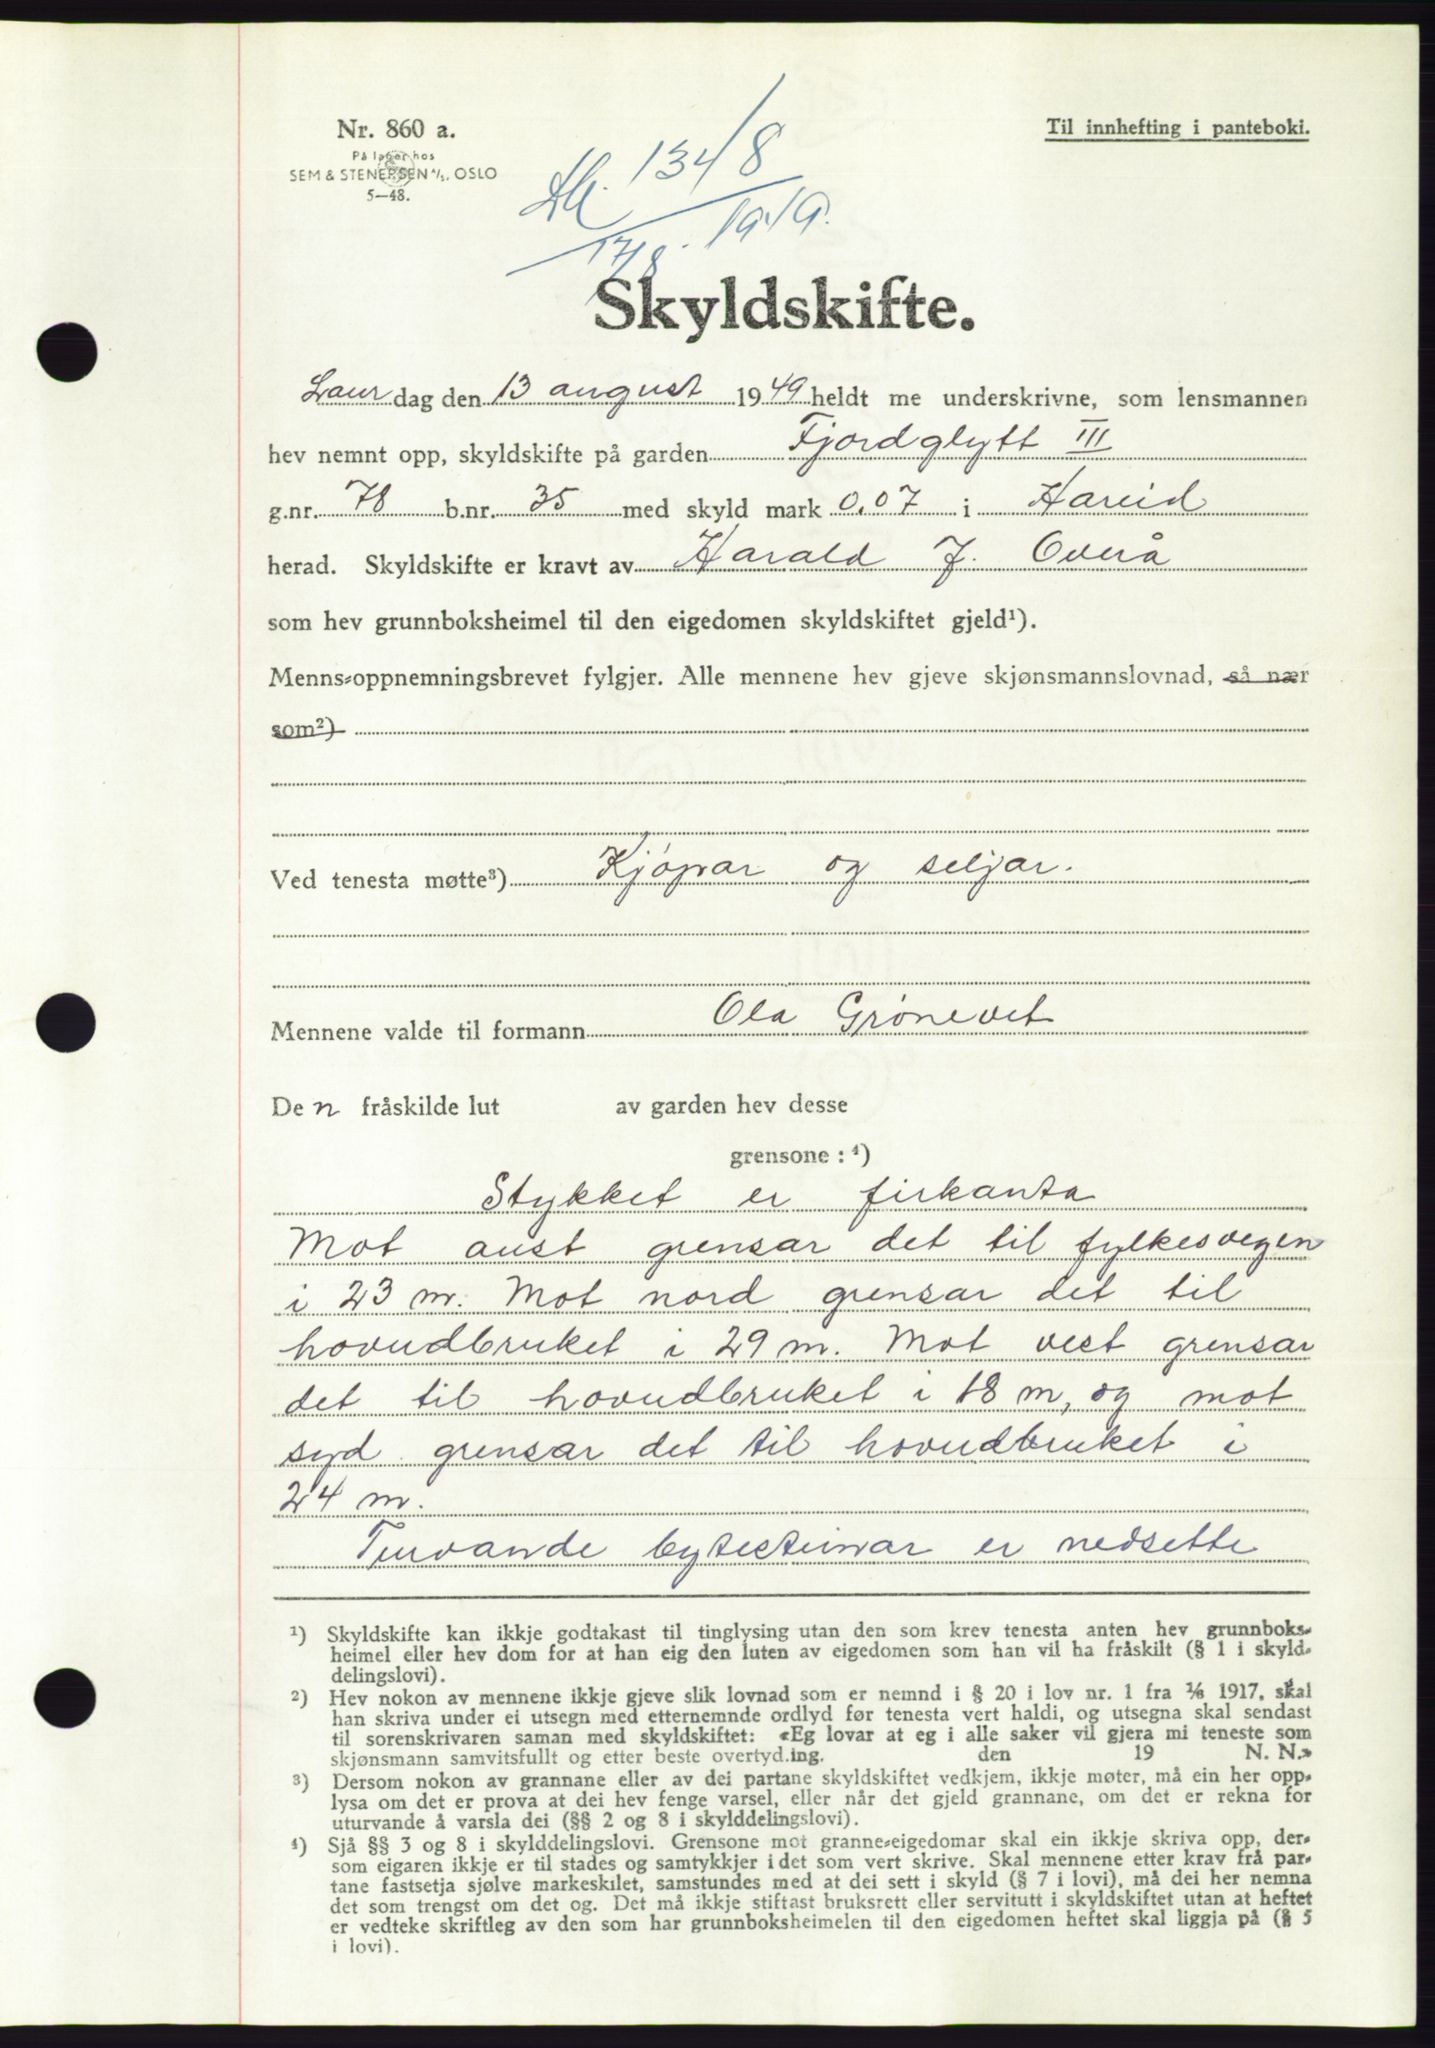 Nr. 860 a.
På lager hos
SEM & STENERSEN A/S, OSLO
5—48.
Til innhefting i panteboki.
1348
17/8. 1949.
Skyldskifte.
Laur dag den 13 august 1949 heldt me underskrivne, som lensmannen
hev nemnt opp, skyldskifte på garden Fjordglytt III
g.nr. 78 b.nr. 35 med skyld mark 0,07 i Hareid
herad. Skyldskifte er kravt av Harald J. Overå
som hev grunnboksheimel til den eigedomen skyldskiftet gjeld¹).
Menns-oppnemningsbrevet fylgjer. Alle mennene hev gjeve skjønsmannslovnad, så nær
som²)
Ved tenesta møtte³) Kjøpar og seljar.
Mennene valde til formann Ola Grønevet
De n fråskilde lut av garden hev desse
grensone : ⁴)
Stykket er firkanta
Mot aust grensar det til fylkesvegen
i 23 m. Mot nord grensar det til
hovudbruket i 29 m. Mot vest grensar
det til hovudbruket i 18 m, og mot
syd grensar det til hovudbruket i
24 m.
Turvande bytesteinar er nedsette
¹) Skyldskifte kan ikkje godtakast til tinglysing utan den som krev tenesta anten hev grunnboks-
heimel eller hev dom for at han eig den luten av eigedomen som han vil ha fråskilt (§ 1 i skyld-
delingslovi).
²) Hev nokon av mennene ikkje gjeve slik lovnad som er nemnd i § 20 i lov nr. 1 fra 1/6 1917, skal
han skriva under ei utsegn med etternemnde ordlyd før tenesta vert haldi, og utsegna skal sendast
til sorenskrivaren saman med skyldskiftet: «Eg lovar at eg i alle saker vil gjera mi teneste som
skjønsmann samvitsfullt og etter beste overtyd.ing. den 19 N. N.»
³) Dersom nokon av grannane eller av dei partane skyldskiftet vedkjem, ikkje møter, må ein her opp-
lysa om det er prova at dei hev fenge varsel, eller når det gjeld grannane, om det er rekna for
uturvande å varsla dei (§§ 2 og 8 i skylddelingslovi).
⁴) Sjå §§ 3 og 8 i skylddelingslovi. Grensone mot granne-eigedomar skal ein ikkje skriva opp, der-
som eigaren ikkje er til stades og samtykkjer i det som vert skrive. Skal mennene etter krav frå par-
tane fastsetja sjølve markeskilet, samstundes med at dei sett i skyld (§ 7 i lovi), må dei her nemna
det som trengst om det og. Det må ikkje stiftast bruksrett eller servitutt i skyldskiftet utan at heftet
er vedteke skriftleg av den som har grunnboksheimelen til den eigedomen heftet skal liggja på (§ 5
i lovi).